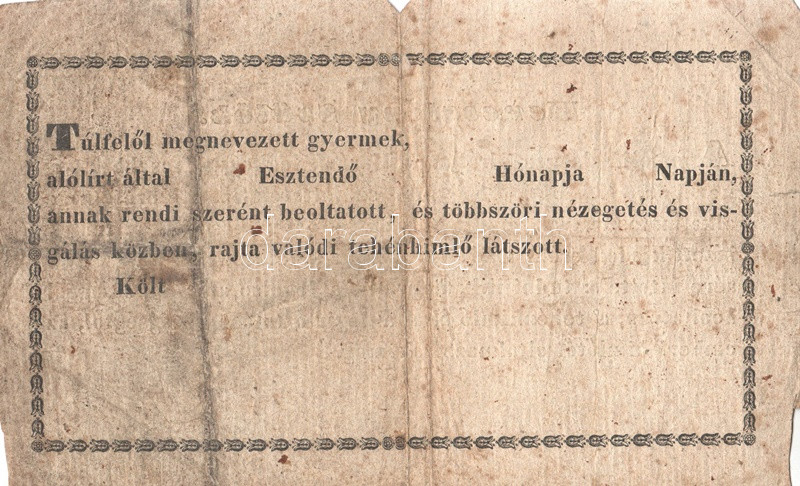 Túlfelől megnevezett gyermek,
alólírt által Esztendő Hónapja Napján,
annak rendi szerént beoltatott, és többszöri nézegetés és vis-
gálás közben, rajta valódi tehénhimlő látszott.
darabanth
Költ